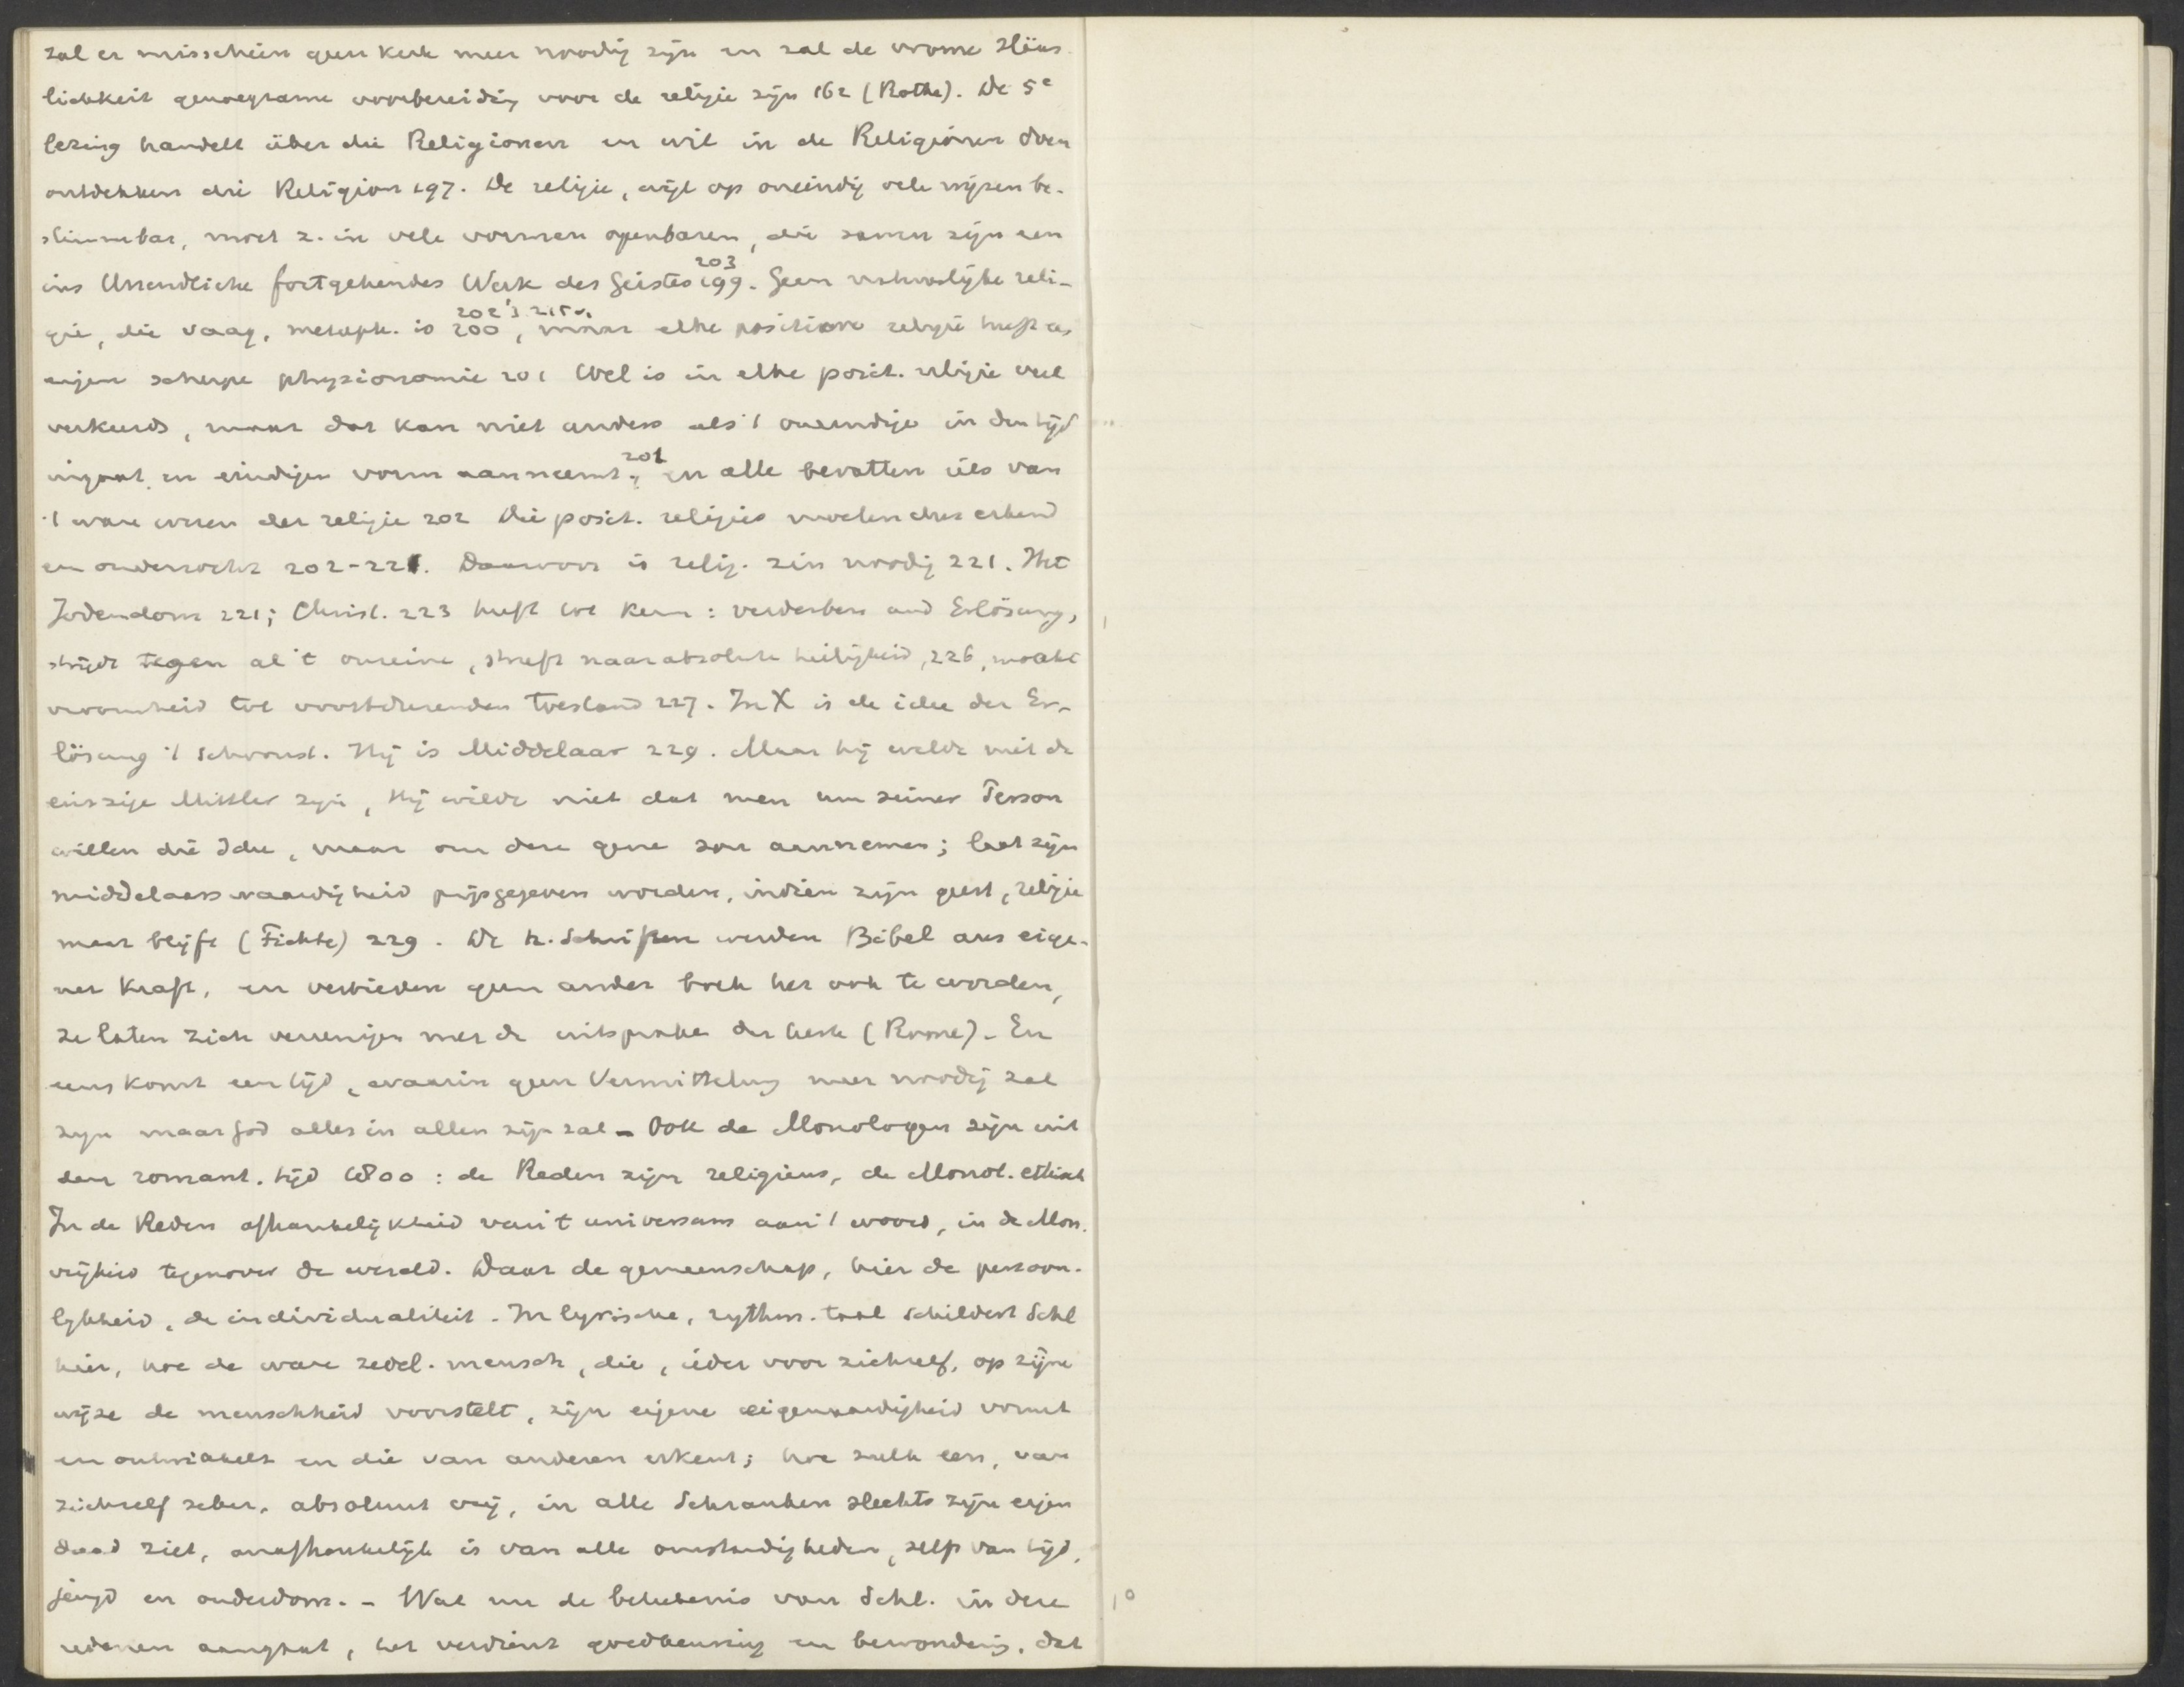 zal er misschien geen kerk meer noodig zijn en zal de vrome Häus-
lichkeit genoegzame voorbereiding voor de religie zijn 162 (Rothe). De 5e
lezing handelt über die Religionen en wil in de Religionen doen
ontdekken die Religion 197. De religie, wijl op oneindig vele wijzen be-
stimmbar, moet z. in vele vormen openbaren, die samen zijn een
203
ins Unendliche fortgehendes Werk des Geistes 199. Geen natuurlijke reli-
202
gie, die vaag, metaph. is 200, maar elke positieve religie heeft
eigen scherpe physionomie 201 Wel is in elke posit. religie veel
verkeerds, maar dat kan niet anders als 't oneindige in den tijd
201
ingaat en eindigen vorm aanneemt, en alle bevatten iets van
't ware wezen der religie 202 Die posit. religies moeten dus erkend
en onderzocht 202-221. Daarvoor is relig. zin noodig 221. Het
Jodendom 221; Christ. 223 heeft tot kern: verderben und Erlösung,
strijdt tegen al 't onreine, streeft naar absolute heiligheid, 226, maakt
vroomheid tot voortdurenden toestand 227. In X is de idee der Er-
lösung 't schoonst. Hij is Middelaar 229. Maar hij wilde niet de
einzige Mittler zijn, Hij wilde niet dat men um seiner Person
willen die Idee, maar om deze gene zou aannemen; laat zijn
middelaarswaardigheid prijsgegeven worden, indien zijn geest, religie
maar blijft (Fichte) 229. De h. Schriften werden Bibel aus eige-
ner Kraft, en verbieden geen ander boek het ook te worden,
ze laten zich vereenigen met de uitspraken der kerk (Rome). En
eens komt een tijd, waarin geen Vermittelung meer noodig zal
zijn maar God alles in allen zijn zal - Ook de Monologen zijn uit
den romant. tijd 1800: de Reden zijn religieus, de Monol. ethisch
In de Reden afhankelijkheid van 't universum aan 't woord, in de Mon.
vrijheid tegenover de wereld. Daar de gemeenschap, hier de persoon-
lijkheid, de individualiteit. In lyrische, rythm. taal schildert Schl
hier, hoe de ware zedel. mensch, die, ieder voor zichzelf, op zijne
wijze de menschheid voorstelt, zijn eigene eigenaardigheid vormt
en ontwikkelt en die van anderen erkent; hoe zulk een, van
zichzelf zeker, absoluut vrij, in alle Schranken slechts zijn eigen
daad ziet, onafhankelijk is van alle omstandigheden, zelfs van tijd,
jeugd en ouderdom. - Wat nu de beteekenis van Schl. in deze
redenen aangaat, het verdient goedkeuring en bewondering, dat